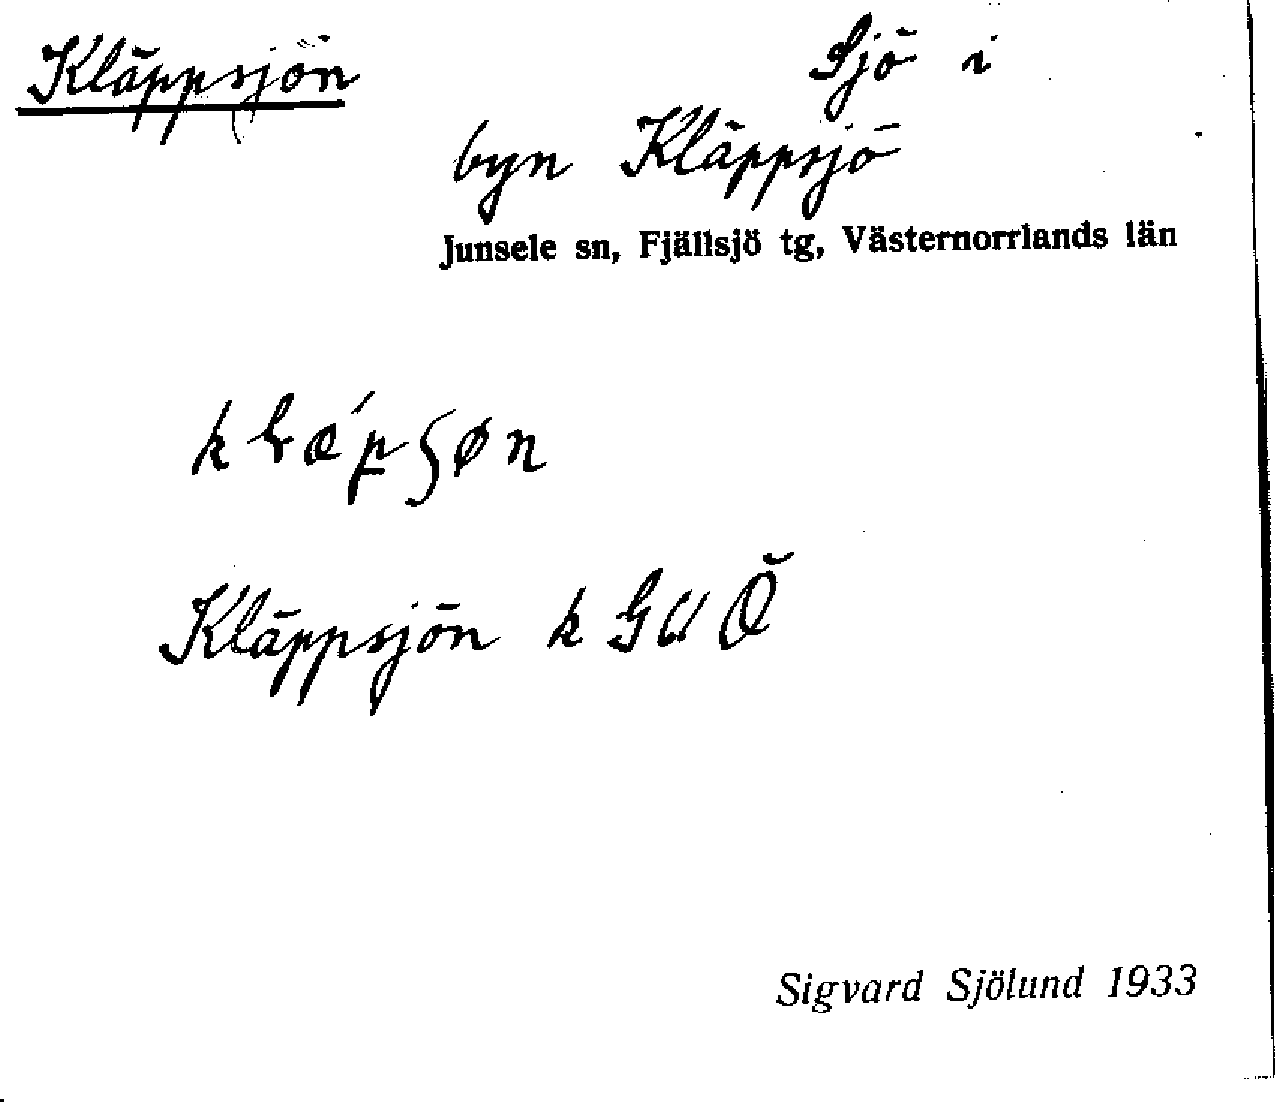 Kläppsjön
Sjö i
byn Kläppsjö
Junsele sn, Fjällsjö tg, Västernorrlands län
Kläppsjön k G
Sigvard Sjölund 1933